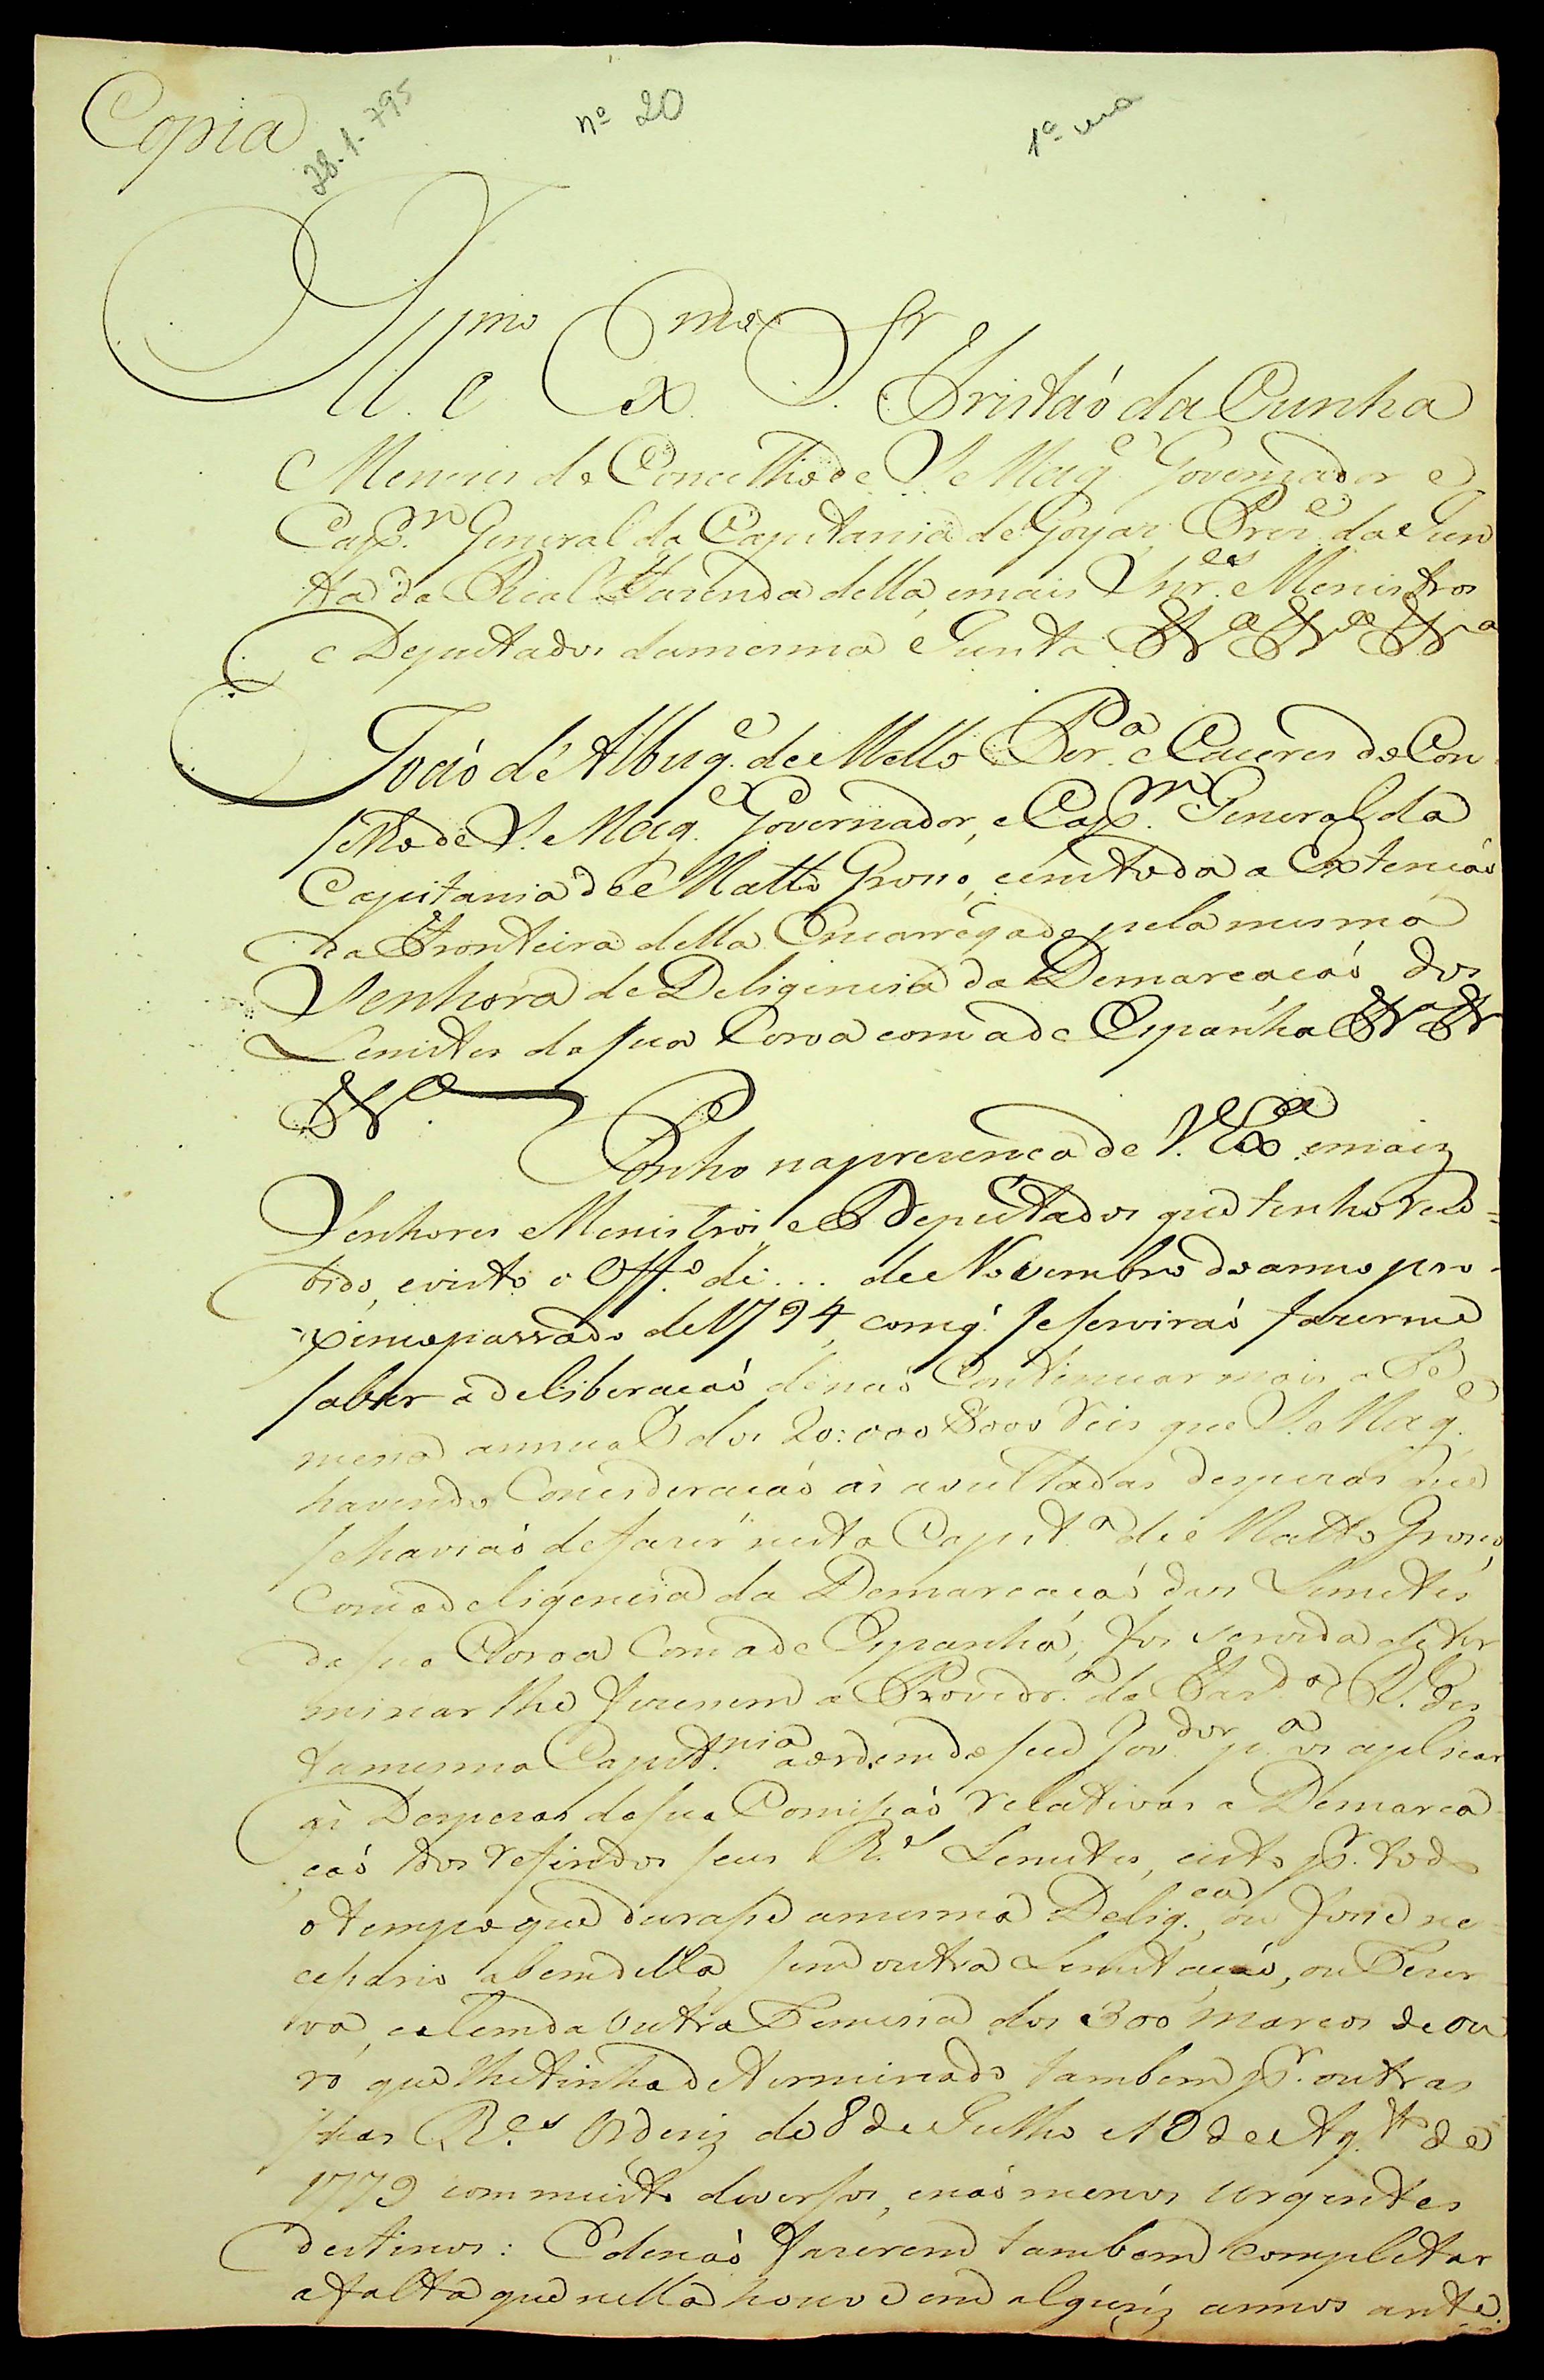 Copia
28.1.795
nº 20
1ª via
Illmo e Exmo Sr Tristaó da Cunha
Menezes do Concelho de S. Mage Governador e
Capm General da Capitania de Goyaz, Preze da Jun
ta da Real Fazenda della, emais Snres Menistros
e Deputados damesma Junta &a &a &a
Joaó d'Albuqe de Mello Pera e Caceres do Con
selho de S. Mage Governador, e Capm General da
Capitania de Matto Grosso, eemtoda a Extencaó
da Fronteira della Encarregado pela mesma
Senhora da Deligencia da Demarcacaó dos
Lemites da sua Coroa com a de Espanha &a &
&a
Ponho naprezenca de V. Exa emaiz
Senhores Menistros, e Deputados que tenho rece=
bido, evisto o Offo de ... de Novembro do anno pro-
ximopassado de 1794, comq. se serviraó fazerme
saber a deliberacaó denaó Continuar mais a Re
messa annual dos 20:000$000 reis que S. Mage
havendo Consideracaó ás avultadas despezas que
sehaviaó defazer nesta Capita de Matto Grosso,
Com a deligencia da Demarcacaó dos Lemites
da sua Coroa Com a de Espanha, foi servida deter
minar lhe fizessem a Provedra da Fazda R. des
tamesma Capitnia aordem do seu Govdor pa os aplicar
ás Despezas da sua Comissaó relativas a Demarca-
caó dos referidos seus Rs Lemites, eisto pr. todo
otempo que durasse amesma Deligca, ou fosse ne-
cessario abem della, sem outra Lemitacaó, ou Rezer
va, ealem da outra Remessa dos 300 marcos de ou
ro que lhetinha determinado tambem pr. outras
suas Res Ordenz de 8 de Julho e 10 de Agto de
1779 com muito diversos, enaó menos urgentes
destinos: Edenaó fazerem tambem completar
afalta que nella houve em alguñz annos ante